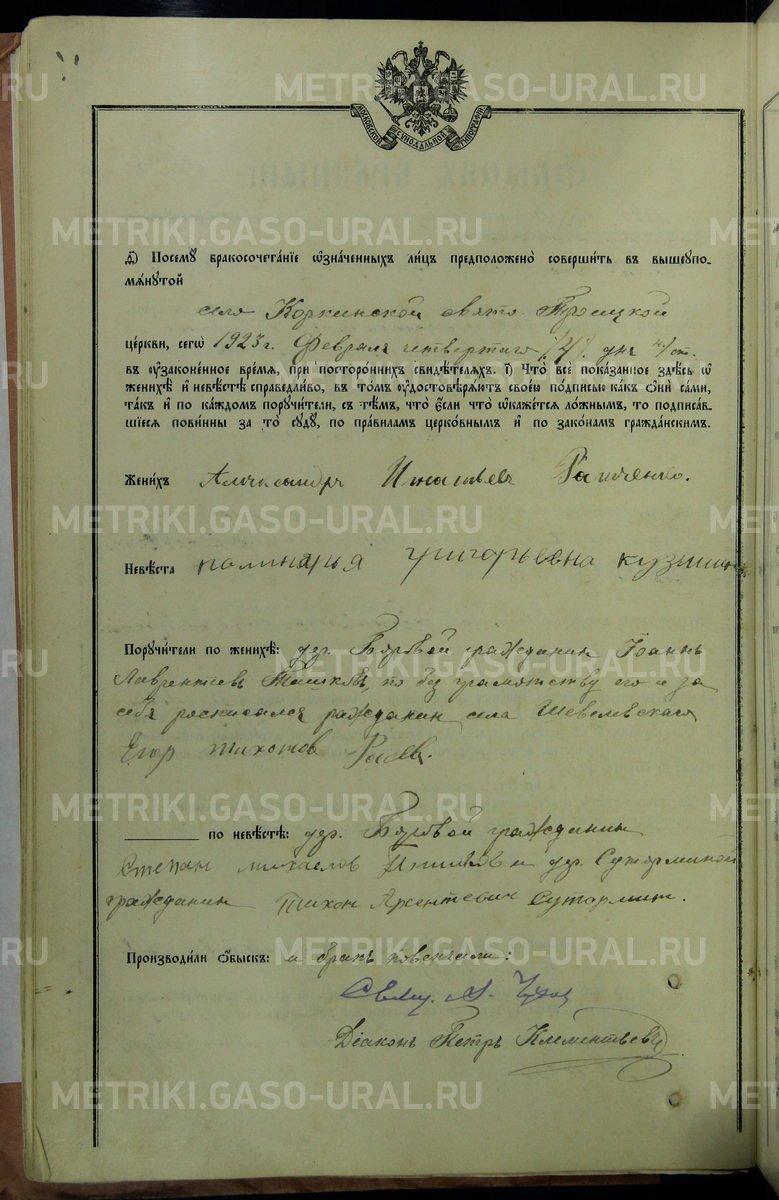 METRIKI.GASO-URAL.RU
МОСКОВСКОЙ СѴНОДАЛЬНОЙ ТИПОГРАФІИ
Посемꙋ бракосочета́нїе ѡ҆зна́ченныхъ ли́цъ предположено̀ соверши́ть въ вышеꙋпо-
мѧ́нꙋтой
села Коркинской свято Троицкой
це́ркви, сегѡ̀ 1923 г. Февраля четвертаго /4/ дня
въ ᲂу҆зако́ненное вре́мѧ, при посторо́ннихъ свидѣ́телѧхъ. 7) Что̀ всѐ пока́занное здѣ́сь ѡ҆
женихѣ̀ и҆ невѣ́стѣ справедли́во, въ то́мъ ᲂу҆достовѣрѧ́ютъ свое́ю по́дписью ка́къ ѻ҆нѝ са́ми,
та́къ и҆ по ка́ждомъ порꙋчи́тели, съ тѣ́мъ, что̀ є҆́сли что̀ ѡ҆ка́жетсѧ ло́жнымъ, то подписа́в-
шїесѧ пови́нны за то̀ сꙋдꙋ̀, по пра́виламъ церко́внымъ и҆ по зако́намъ гражда́нскимъ.
Жени́хъ Александръ Игнатьевъ
Невѣ́ста полинарья григорьевна
Порꙋчи́тели по женихѣ̀: дер. Боровой гражданин Іоаннъ
Лаврентиев по без грамотству его и за
себя росписался ражданин села Шевелевскаго
Егор
по невѣ́стѣ: дер. Боровой гражданин
Степан михаелов и дер. Суторминой
гражданин Тихон Сутормин.
Производи́ли ѻ҆́быскъ: и бракъ повенчали:
Свящ.
Діаконъ Петръ Клементьевъ